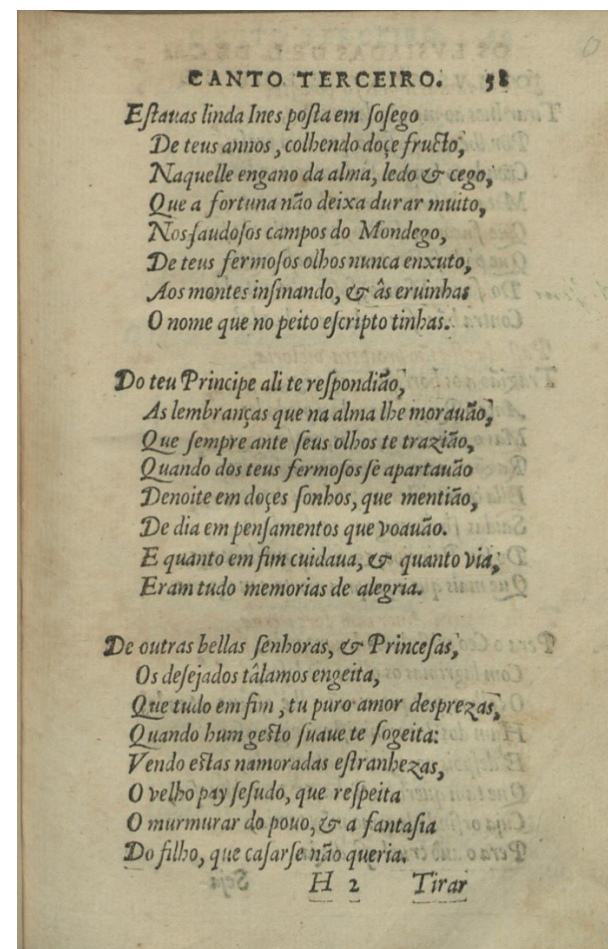 CANTO TERCEIRO. 58
Eſtauas linda Ines poſta em ſoſego
De teus annos, colhendo doçe fructo,
Naquelle engano da alma, ledo & cego,
Que a fortuna não deixa durar muito,
Nos ſaudoſos campos do Mondego,
De teus fermoſos olhos nunca enxuto,
Aos montes inſinando, & âs eruinhas
O nome que no peito eſcripto tinhas.
Do teu Principe ali te reſpondião,
As lembranças que na alma lhe morauão,
Que ſempre ante ſeus olhos te trazião,
Quando dos teus fermoſos ſe apartauão
Denoite em doçes ſonhos, que mentião,
De dia em penſamentos que voauão.
E quanto em fim cuidaua, & quanto via,
Eram tudo memorias de alegria.
De outras bellas ſenhoras, & Princeſas,
Os deſejados tâlamos engeita,
Que tudo em fim, tu puro amor deſprezas,
Quando hum geſto ſuaue te ſogeita:
Vendo eſtas namoradas eſtranhezas,
O velho pay ſeſudo, que reſpeita
O murmurar do pouo, & a fantaſia
Do filho, que caſarſe não queria.
H 2 Tirar